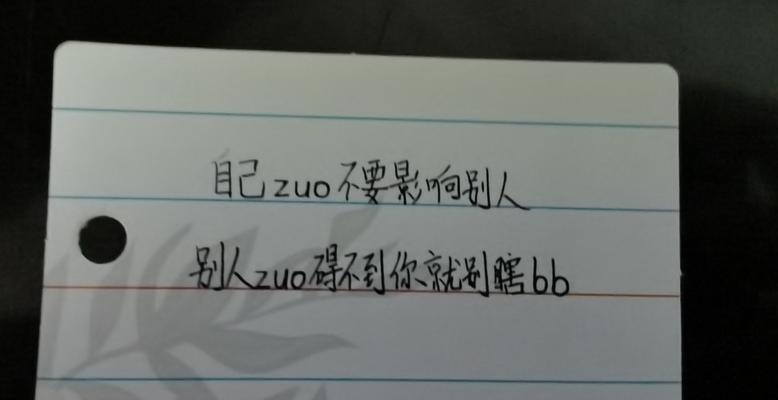 自己zuo不要影响别人
别人zuo碍不到你就别瞎bb